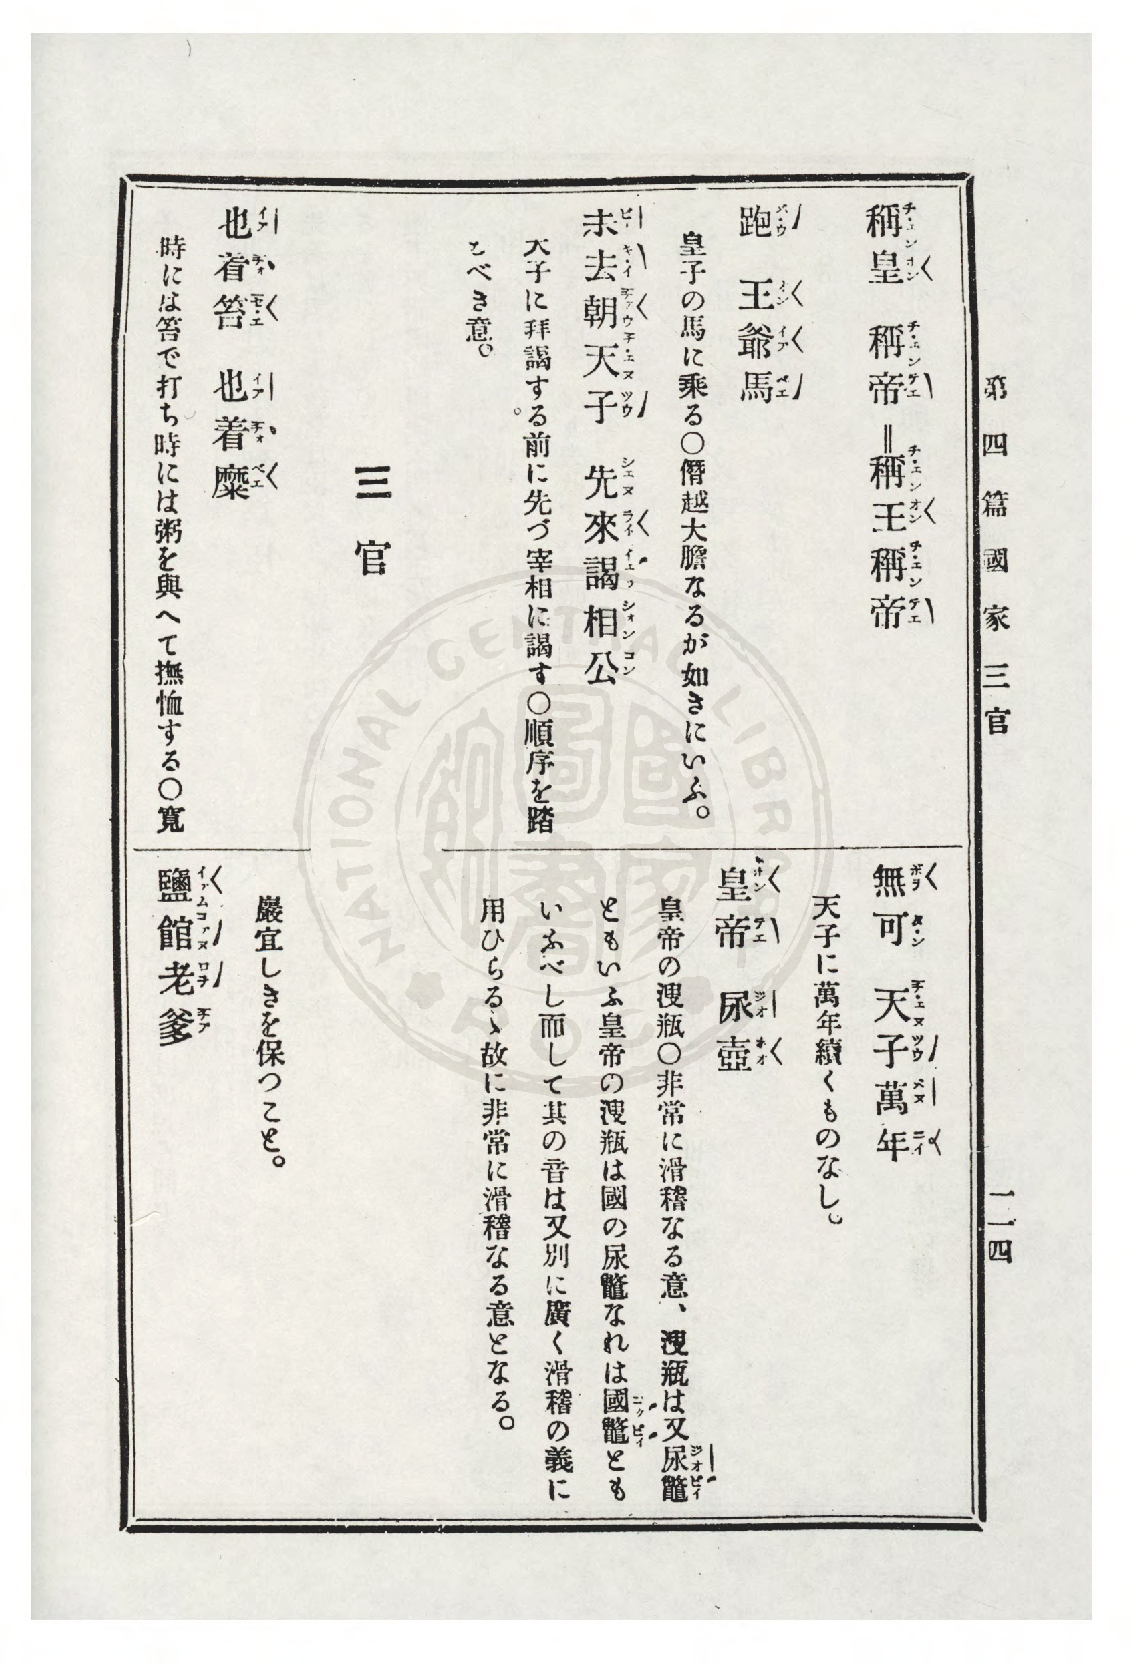 第四篇 國家 三官
一一四
稱皇 稱帝＝稱王稱帝
跑 王爺馬
皇子の馬に乘る〇僭越大膽なるが如きにいふ。
未去朝天子 先來謁相公
天子に拜謁する前に先づ宰相に謁す〇順序を踏
むべき意。
三官
也着笞 也着糜
時には笞で打ち時には粥を與へて撫恤する〇寬
無可 天子萬年
天子に萬年續くものなし。
皇帝 尿壺
皇帝の溲瓶〇非常に滑稽なる意、溲瓶は又尿鼈
ともいふ皇帝の溲瓶は國の尿鼈なれは國鼈とも
いふべし而して其の音は又別に廣く滑稽の義に
用ひらるゝ故に非常に滑稽なる意となる。
嚴宜しきを保つこと。
鹽館老爹
NATIONAL CENTRAL LIBRARY
R.O.C.
國家圖書館